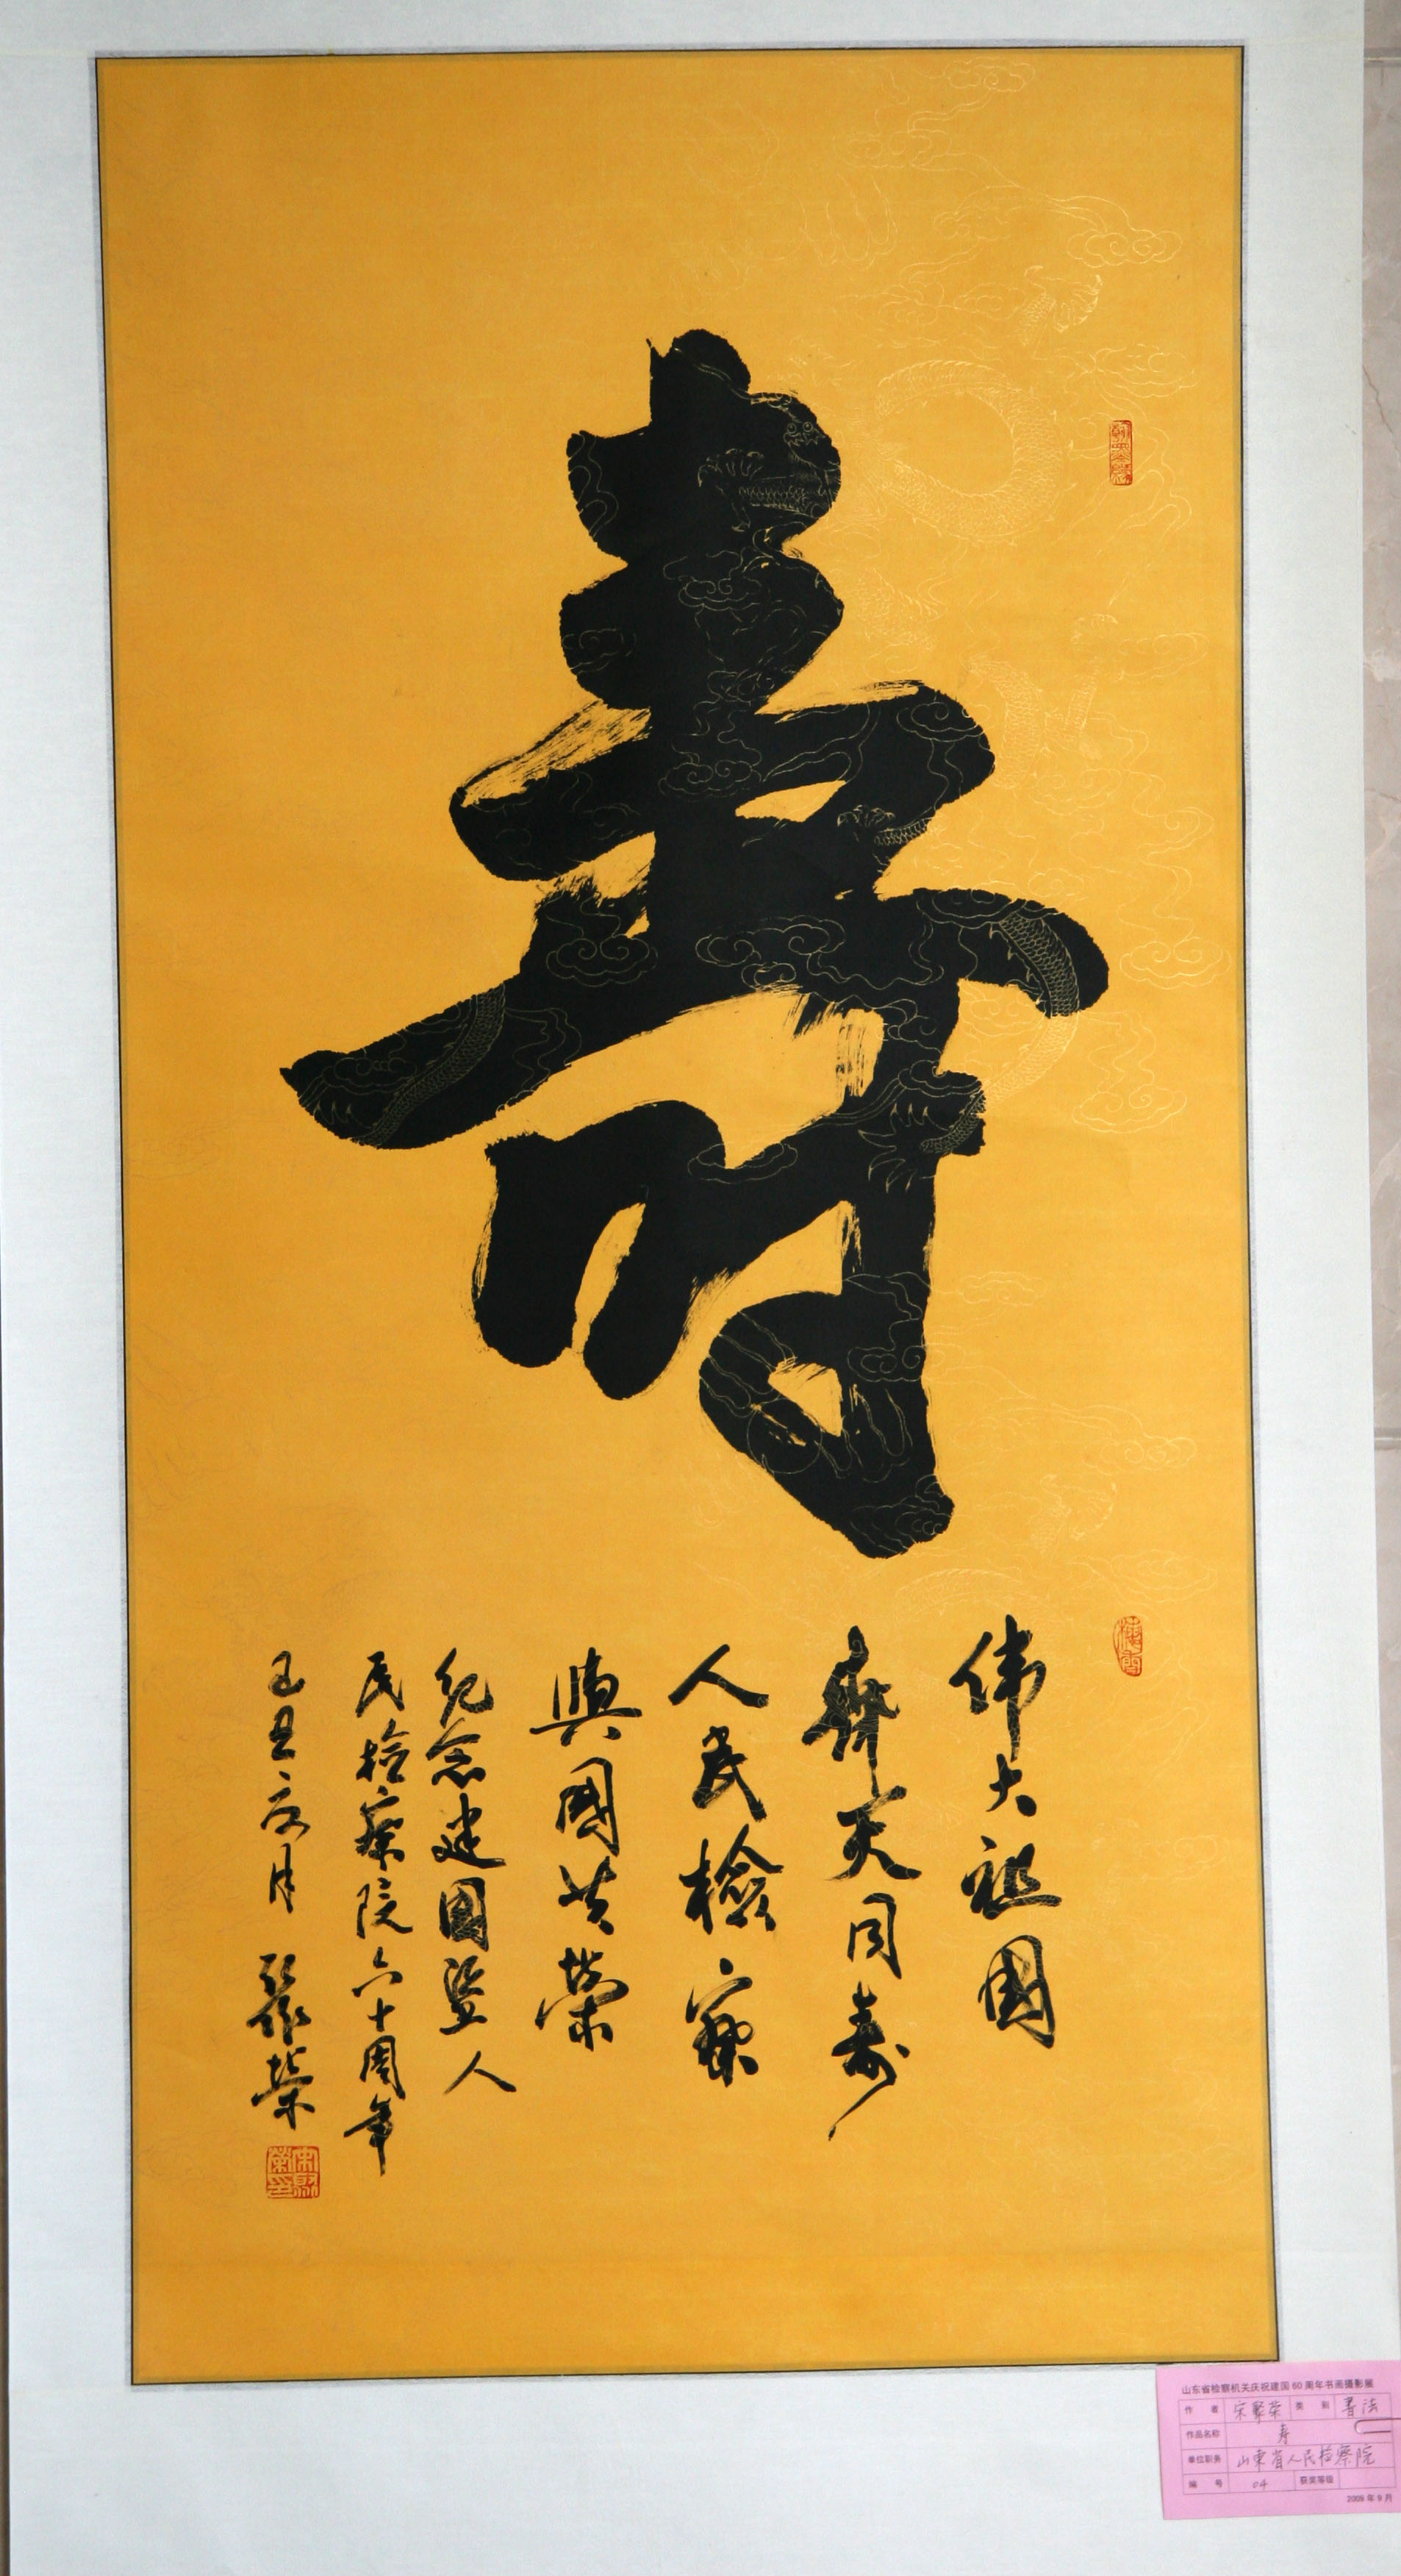 壽
伟大祖國
齊天同壽
人民檢察
與國共榮
纪念建國暨人
民检察院六十周年
己丑六月 聚榮
宋聚榮印
山东省检察机关庆祝建国60周年书画摄影展
作者 宋聚荣 类别 書法
作品名称 寿
单位职务 山東省人民检察院
编号 04 获奖等级
2009年9月